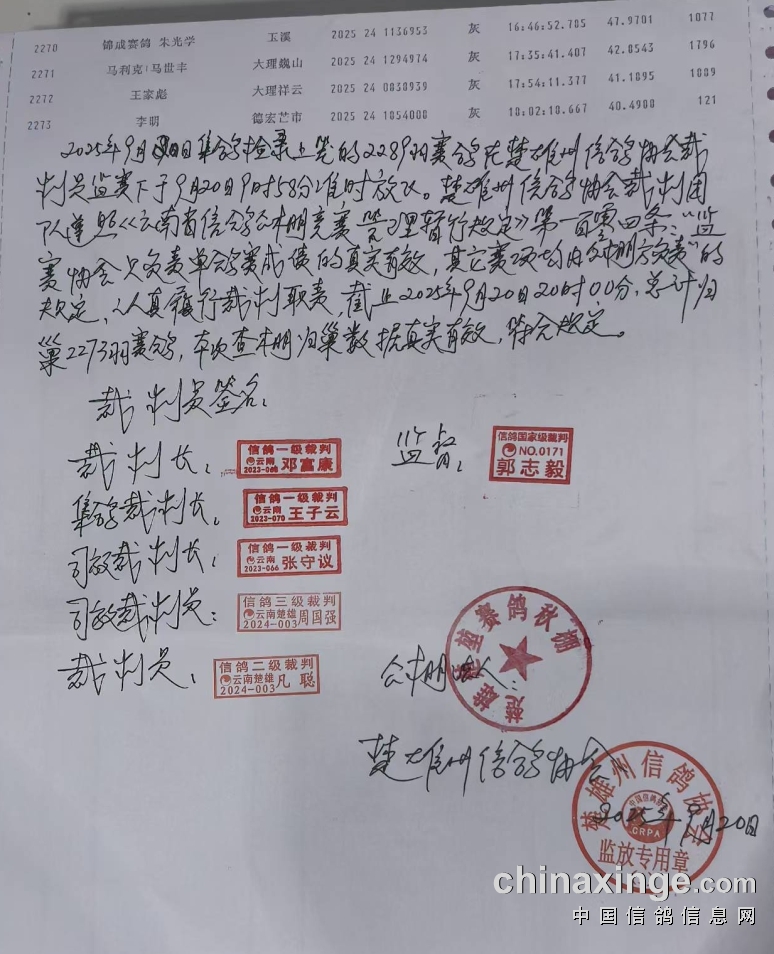 2270 锦成赛鸽 朱光学 玉溪 2025 24 1136953 灰 16:46:52.705 47.9701 1077
2271 马利克:马世丰 大理巍山 2025 24 1294974 灰 17:35:41.407 42.8543 1796
2272 王家彪 大理祥云 2025 24 0838939 灰 17:54:11.377 41.1895 1889
2273 李明 德宏芒市 2025 24 1054008 灰 18:02:18.667 40.4908 121
2025年9月 日集鸽检录上笼的2289羽赛鸽在楚雄州信鸽协会裁
判员监赛下于9月20日9时58分准时放飞。楚雄州信鸽协会裁判团
队遵照《云南省信鸽公棚竞赛管理暂行规定》第一百零四条:“监
赛协会只负责单鸽赛成绩的真实有效,其它赛项均由公棚方负责”的
规定,认真履行裁判职责,截止2025年9月20日20时00分,总计归
巢2273羽赛鸽,本次查棚归巢数据真实有效,符合规定。
裁判员签名:
裁判长: 信鸽一级裁判 云南 2023-068 邓富康 监督: 信鸽国家级裁判 NO.0171 郭志毅
集鸽裁判长: 信鸽一级裁判 云南 2023-070 王子云
司放裁判长: 信鸽一级裁判 云南 2023-066 张守议
司放裁判员: 信鸽三级裁判 云南楚雄 2024-003 周国强
裁判员: 信鸽二级裁判 云南楚雄 2024-003 凡聪
公棚 人: 楚雄 堃赛鸽秋棚
楚雄州信鸽协会
楚雄州信鸽协会 中国信鸽 CRPA 监放专用章
2025年9月20日
chinaxinge.com
中国信鸽信息网